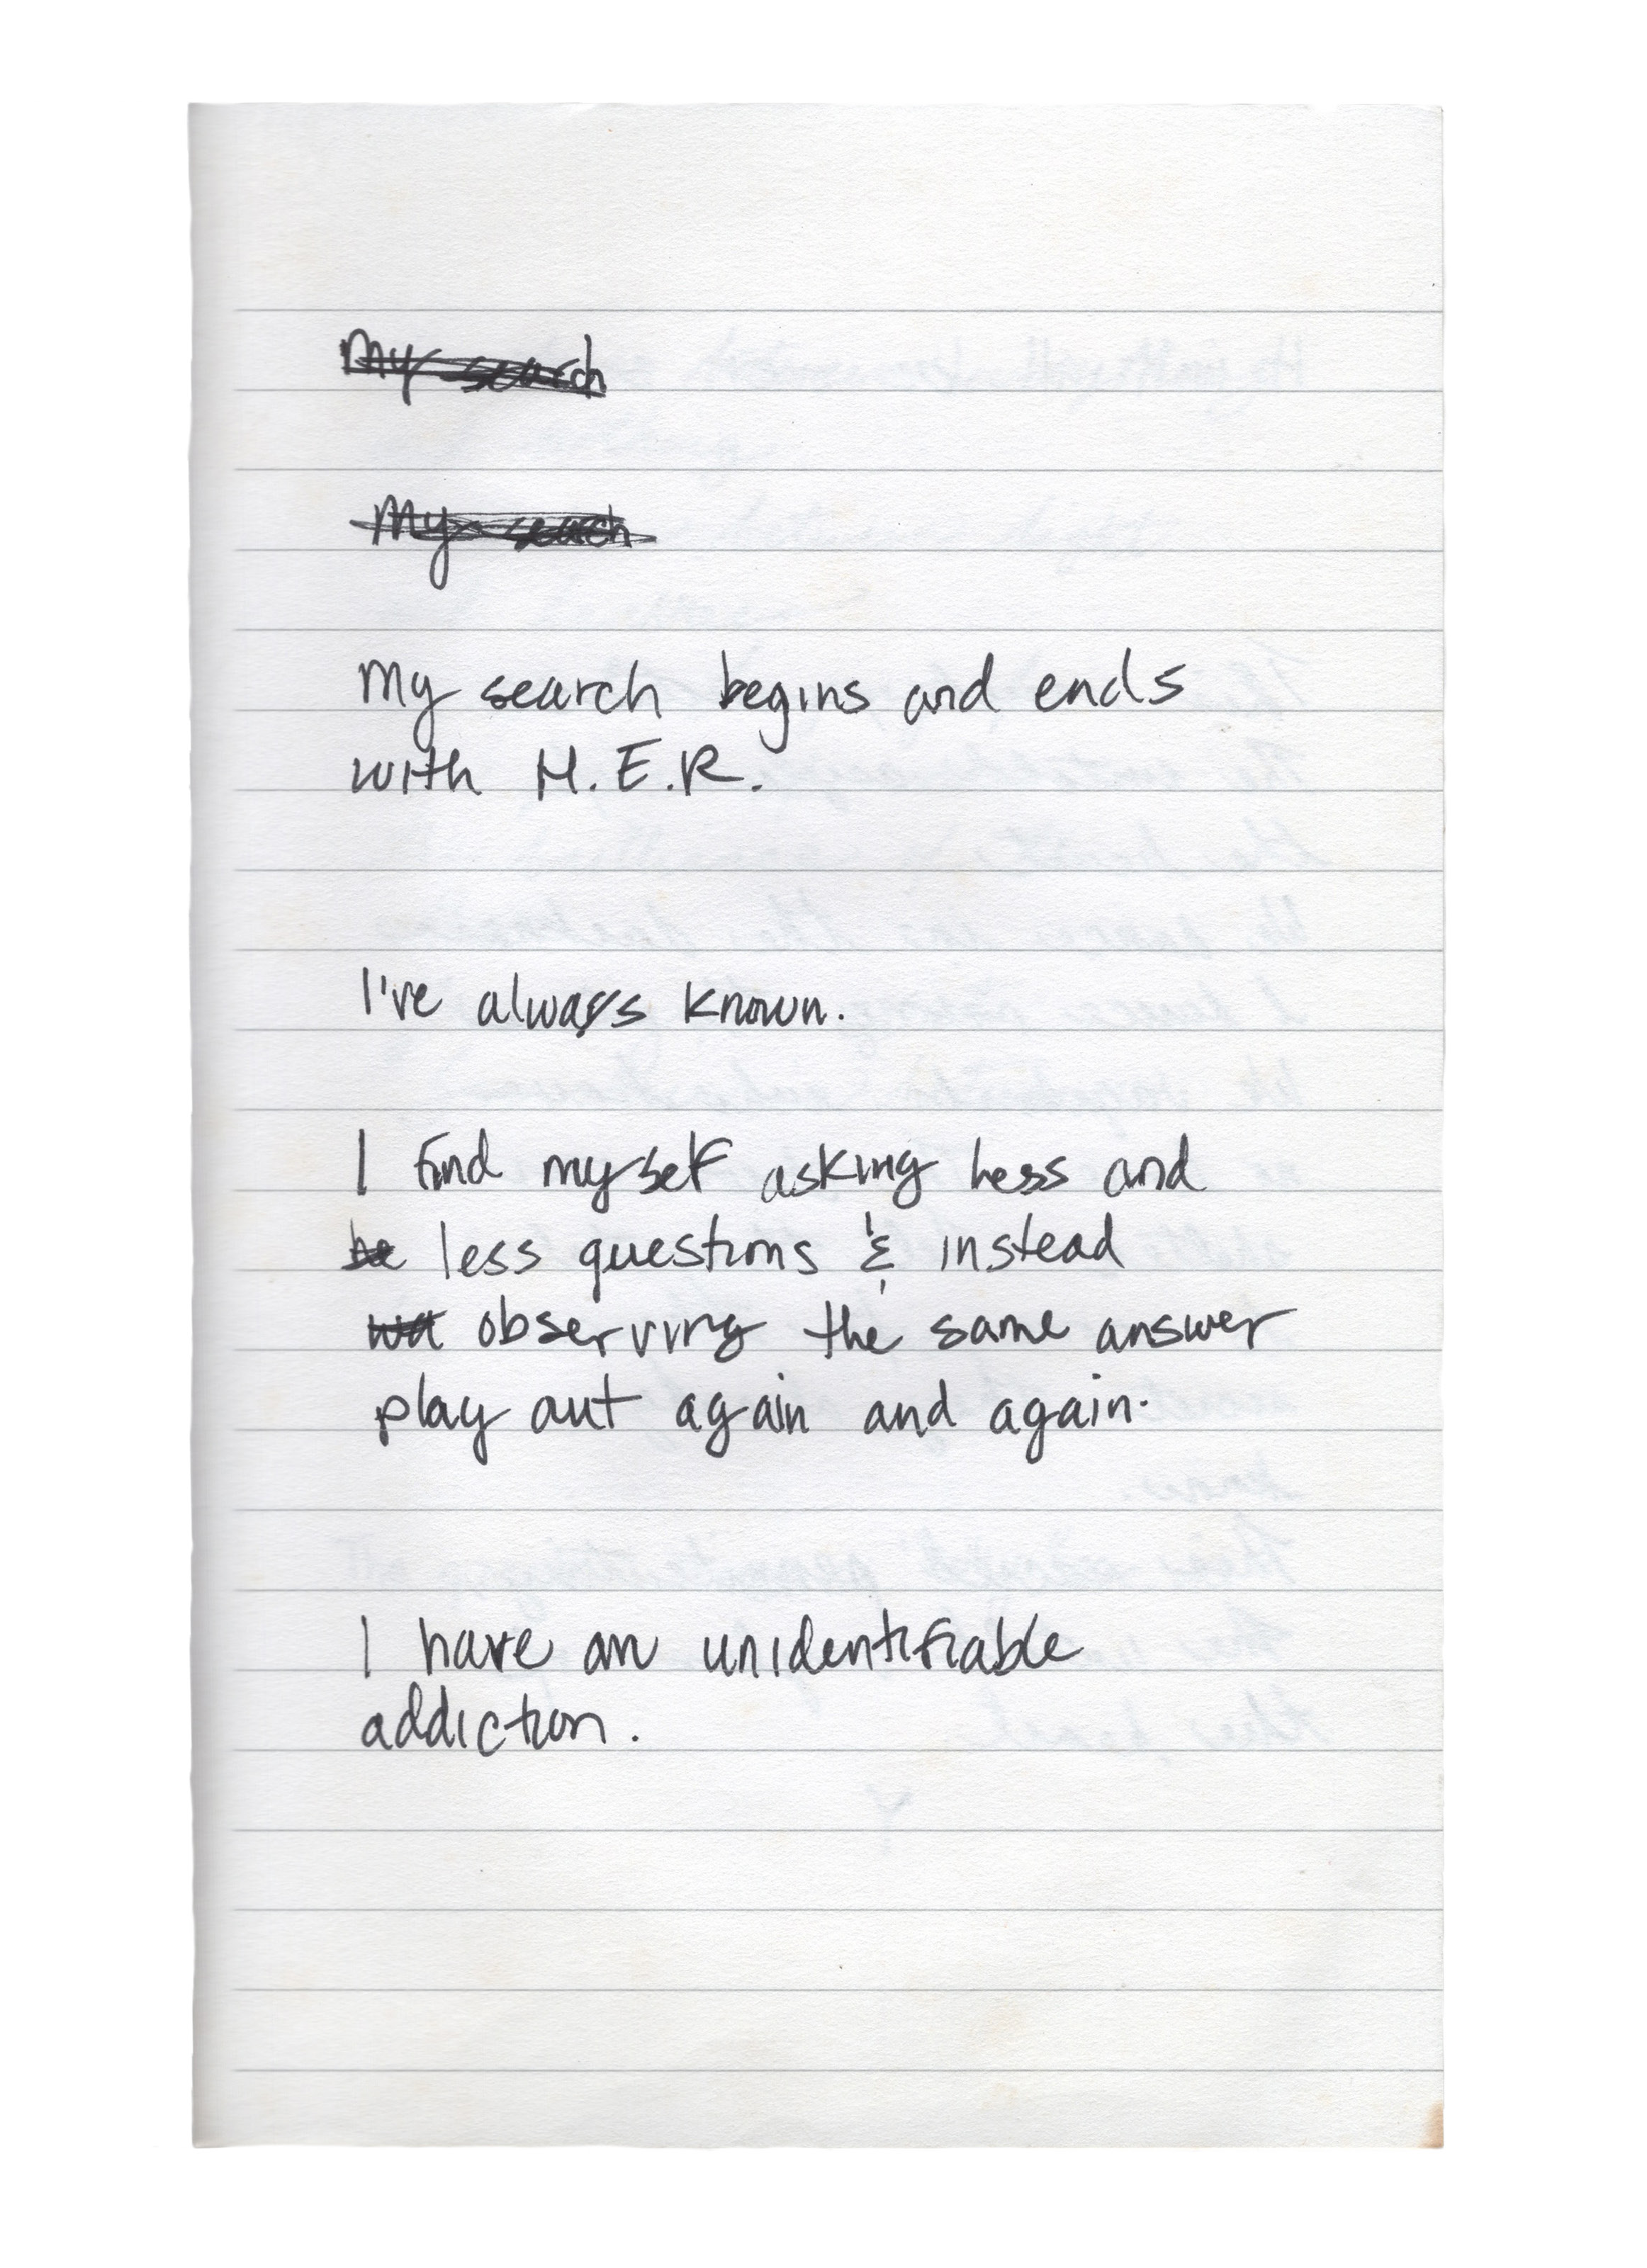 My search
My search
My search begins and ends
with H.E.R.
I've always known.
I find myself asking less and
be less questions & instead
observing the same answer
play out again and again.
I have an unidentifiable
addiction.